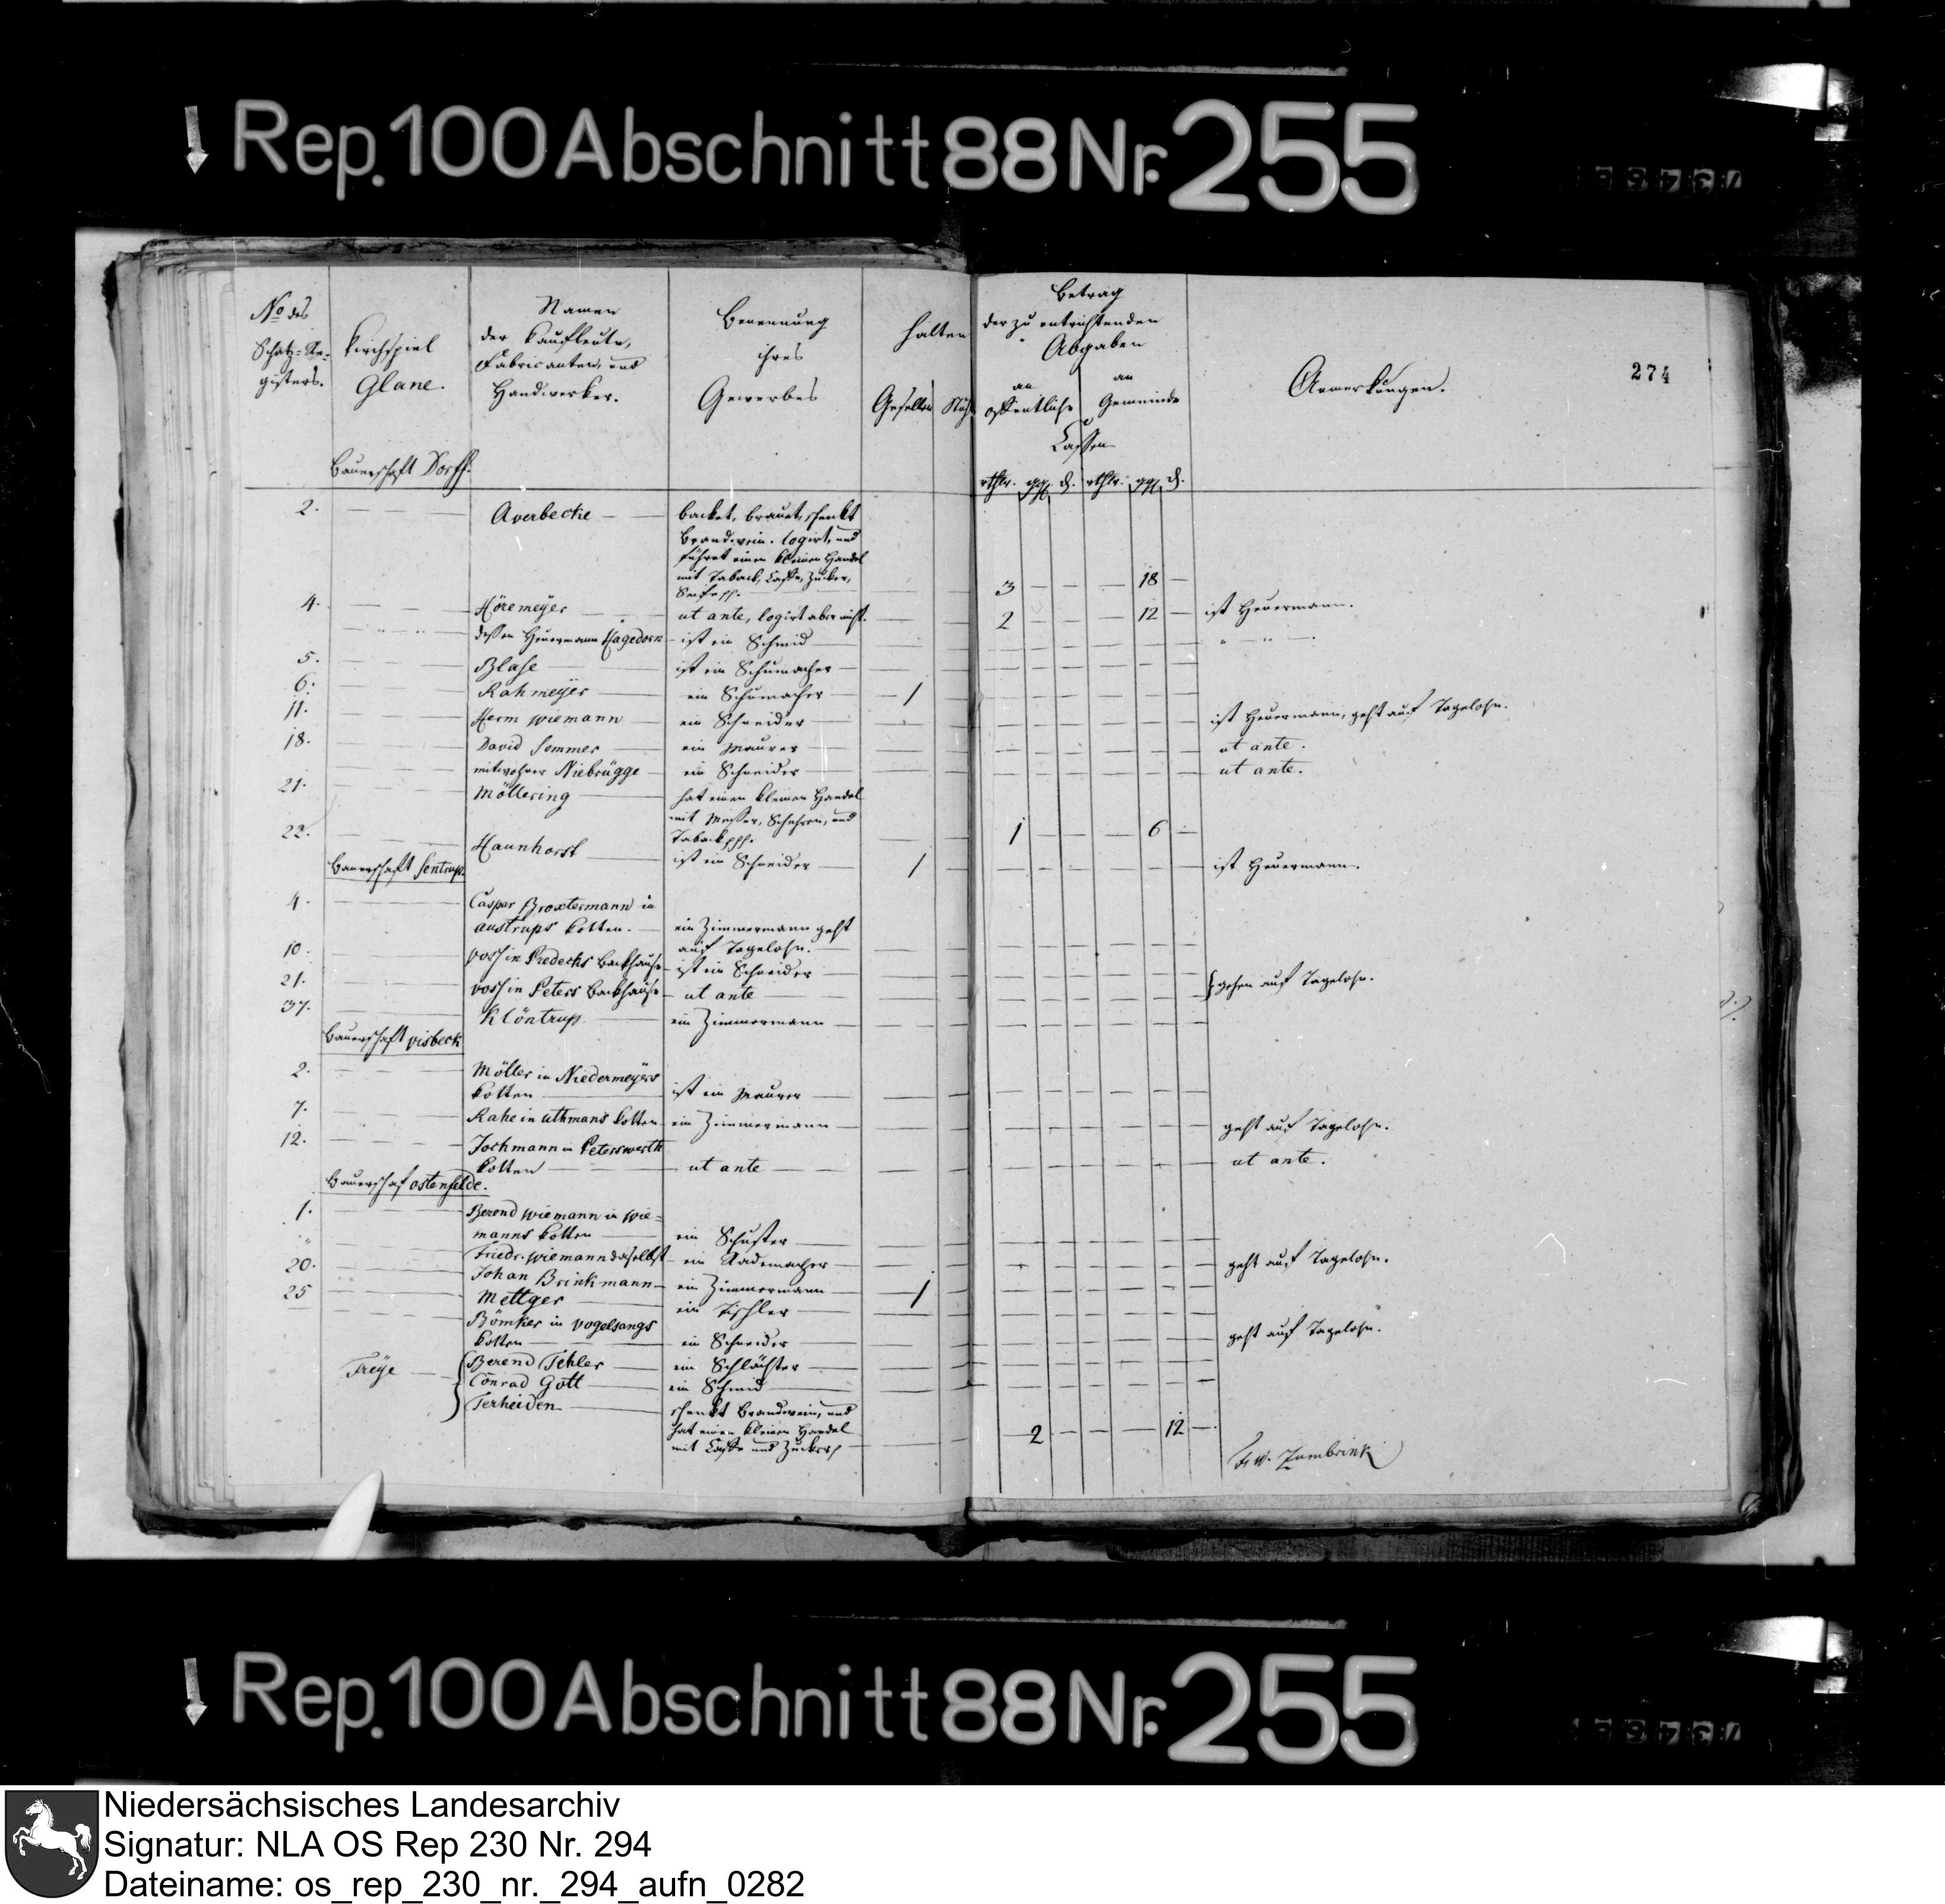 Rep. 100 Abschnitt 88 Nr. 255
274
No des Schatz-Registers.
Kirchspiel Glane.
Namen der Kaufleute, Fabricanten, und Handwerker.
Benennung ihres Gewerbes
halten
Gesellen
Betrag der zu entrichtenden Abgaben
an offentliche
an Gemeinde
Cassen
rthlr. ggl. d. rthlr. ggl. d.
Anmerkungen.
Bauerschaft Dorff.
2. Averbecke backet, brauet, schenkt
Brandwein. logirt, und
führet einen kleinen Handel
mit Taback, Caffe, Zucker,
Seife pp. 3 — — — 18 —
4. Höremeyer ut ante, logirt aber nicht. 2 — — — 12 — ist Heuermann.
" " " dessen Heuermann Hagedorn ist ein Schmid " — " —
5. Blase ist ein Schumacher
6. Rahmeyer ein Schumacher 1
11. Herm Wiemann ein Schneider ist Heuermann, geht auf Tagelohn.
18. David Sommer ein Maurer ut ante.
mitwohner Niebrügge ein Schneider ut ante.
21. Möllering hat einen kleinen Handel
mit Messer, Scheren, und
Taback ppp. 1 — — — 6 —
22. Haunhorst ist ein Schneider 1 ist Heuermann.
Bauerschaft Sentrup.
4. Caspar Broxtermann in
austrups Kotten. ein Zimmermann geht
auf Tagelohn.
10. Voss in Predecks Backhause ist ein Schneider
21. Voss in Peters Backhause ut ante } gehen auf Tagelohn.
37. Klöntrup ein Zimmermann
Bauerschaft Visbeck
2. Möller in Niedermeyers
Kotten ist ein Maurer
7. Rahe in Uthmans Kotten ein Zimmermann geht auf Tagelohn.
12. Jochmann in Peterswerth
Kotten ut ante ut ante.
Bauerschaf ostenfelde.
1. Berend Wiemann in Wie=
manns Kotten ein Schuster
" Friedr. Wiemann daselbst ein Rademacher geht auf Tagelohn.
20. Johan Brinkmann ein Zimmermann
25 Mettger ein Tischler 1
Bömker in Vogelsangs
Kotten ein Schneider geht auf Tagelohn.
Freye { Berend Tehler ein Schlächter
Conrad Gott ein Schmid
Terheiden schenkt Brandwein, und
hat einen kleinen Handel
mit Caffe und Zucker 2 — — — 12 —
F. W. Zumbrink
Rep. 100 Abschnitt 88 Nr. 255
Niedersächsisches Landesarchiv
Signatur: NLA OS Rep 230 Nr. 294
Dateiname: os_rep_230_nr._294_aufn_0282